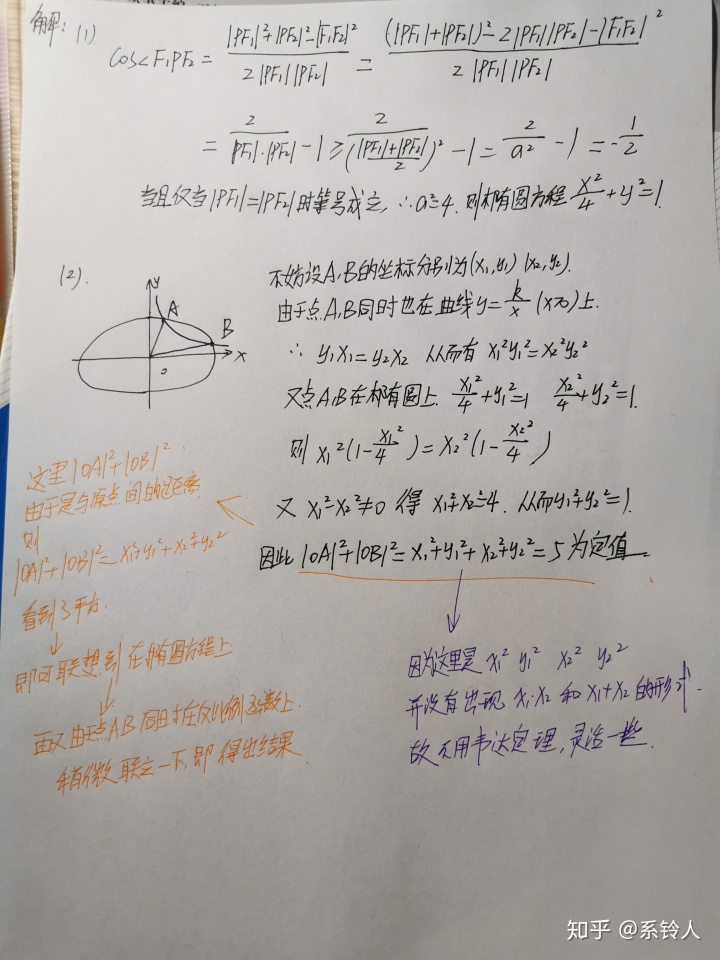 解：(1). cos∠F₁PF₂ = (|PF₁|²+|PF₂|²-|F₁F₂|²)/(2|PF₁||PF₂|) = ((|PF₁|+|PF₂|)²-2|PF₁||PF₂|-|F₁F₂|²)/(2|PF₁||PF₂|)
= 2/(|PF₁|·|PF₂|) - 1 ≥ 2/((|PF₁|+|PF₂|)/2)² - 1 = 2/a² - 1 = -1/2
当且仅当|PF₁|=|PF₂|时等号成立, ∴a²=4. 则椭圆方程 x²/4+y²=1.
(2).
y
A
B
x
o
不妨设A,B的坐标分别为(x₁,y₁) (x₂,y₂).
由于点A,B同时也在曲线y=k/x (x>0)上.
∴ y₁x₁=y₂x₂ 从而有 x₁²y₁²=x₂²y₂²
又点A,B在椭圆上. x₁²/4+y₁²=1 x₂²/4+y₂²=1.
则 x₁²(1-x₁²/4)=x₂²(1-x₂²/4)
又 x₁²-x₂²≠0 得 x₁²+x₂²=4. 从而y₁²+y₂²=1.
因此|OA|²+|OB|²=x₁²+y₁²+x₂²+y₂²=5为定值
这里|OA|²+|OB|²
由于是与原点间的距离,
则
|OA|²+|OB|²=x₁²+y₁²+x₂²+y₂²
看到了平方.
即可联想到 在椭圆方程上
而又由于点AB同时在反比例函数上.
稍微联立一下,即得出结果
因为这里是 x₁² y₁² x₂² y₂²
并没有出现 x₁·x₂ 和 x₁+x₂ 的形式.
故不用韦达定理,灵活一些.
知乎 @系铃人